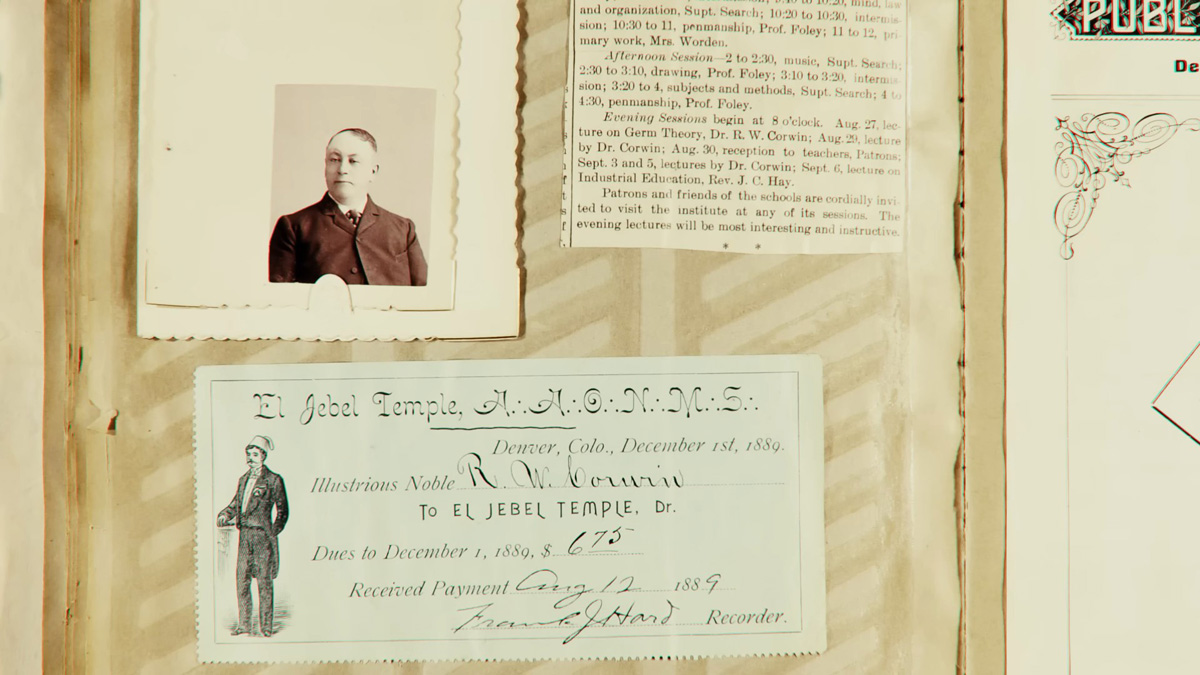 and organization, Supt. Search; 10:20 to 10:30, intermis-
sion; 10:30 to 11, penmanship, Prof. Foley; 11 to 12, pri-
mary work, Mrs. Worden.
Afternoon Session—2 to 2:30, music, Supt. Search;
2:30 to 3:10, drawing, Prof. Foley; 3:10 to 3:20, intermis-
sion; 3:20 to 4, subjects and methods, Supt. Search; 4 to
4:30, penmanship, Prof. Foley.
Evening Sessions begin at 8 o'clock. Aug. 27, lec-
ture on Germ Theory, Dr. R. W. Corwin; Aug. 29, lecture
by Dr. Corwin; Aug. 30, reception to teachers, Patrons;
Sept. 3 and 5, lectures by Dr. Corwin; Sept. 6, lecture on
Industrial Education, Rev. J. C. Hay.
Patrons and friends of the schools are cordially invi-
ted to visit the institute at any of its sessions. The
evening lectures will be most interesting and instructive.
* *
El Jebel Temple, A∴A∴O∴N∴M∴S∴
Denver, Colo., December 1st, 1889.
Illustrious Noble R. W. Corwin
TO EL JEBEL TEMPLE, Dr.
Dues to December 1, 1889, $ 675
Received Payment Aug 12 1889
Frank J Hard Recorder.
PUBL
De